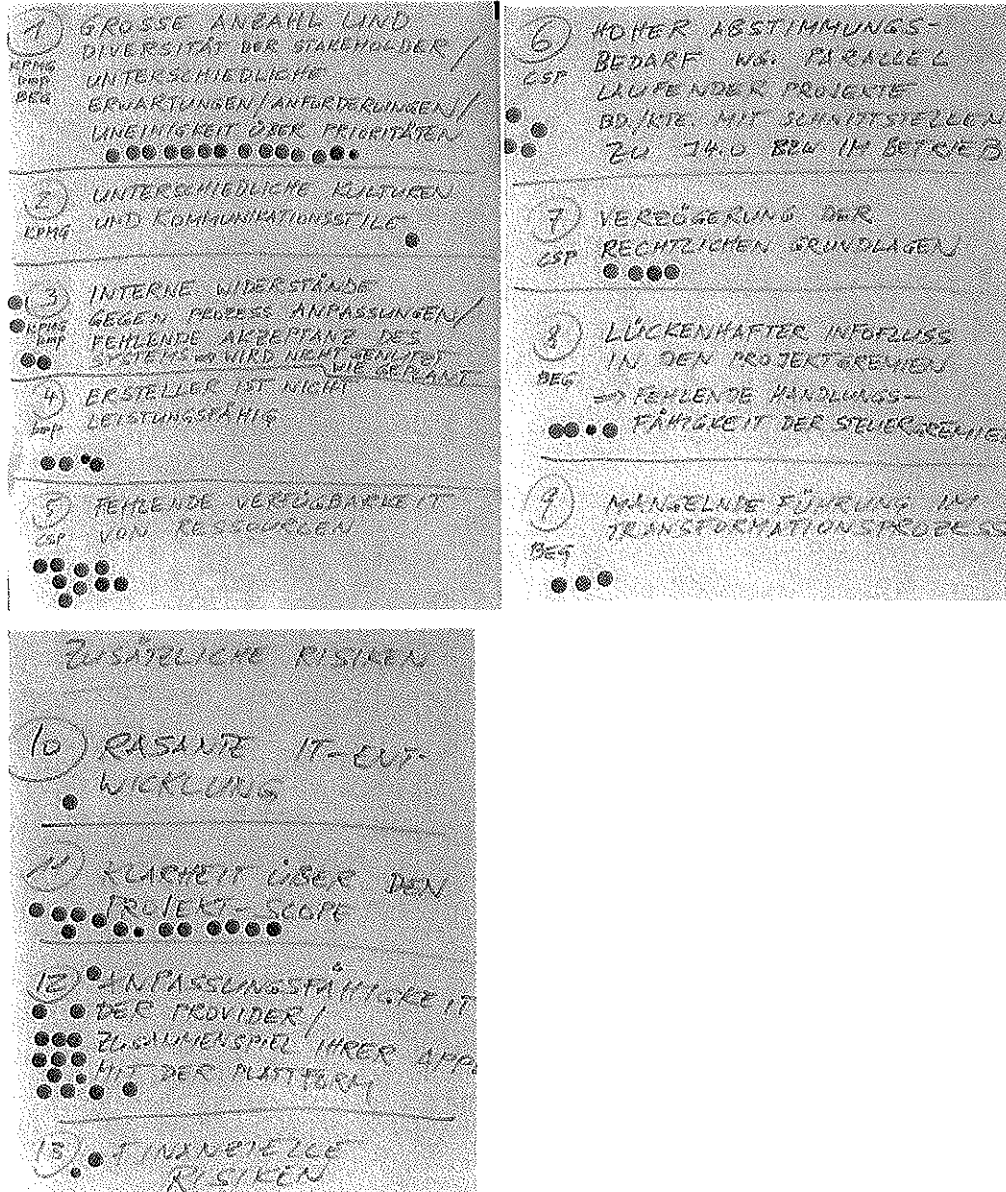 1 GROSSE ANZAHL UND
DIVERSITÄT DER STAKEHOLDER /
KPMG
bmp
BEG
UNTERSCHIEDLICHE
ERWARTUNGEN/ANFORDERUNGEN/
UNEINIGKEIT ÜBER PRIORITÄTEN
2 UNTERSCHIEDLICHE KULTUREN
UND KOMMUNIKATIONSSTILE
KPMG
3 INTERNE WIDERSTÄNDE
GEGEN PROZESS ANPASSUNGEN/
KPMG
bmp
FEHLENDE AKZEPTANZ DES
SYSTEMS → WIRD NICHT GENUTZT
WIE GEPLANT
4 ERSTELLER IST NICHT
LEISTUNGSFÄHIG
bmp
5 FEHLENDE VERFÜGBARKEIT
VON RESSOURCEN
CSP
6 HOHER ABSTIMMUNGS-
BEDARF WG. PARALLEL
CSP
LAUFENDER PROJEKTE
BD./KTE. MIT SCHNITTSTELLEN
ZU J4.0 BZW IM BETRIEB
7 VERZÖGERUNG DER
RECHTLICHEN GRUNDLAGEN
CSP
8 LÜCKENHAFTER INFOFLUSS
IN DEN PROJEKTGREMIEN
BEG
⇒ FEHLENDE HANDLUNGS-
FÄHIGKEIT DER STEUERGREMIE
9 MANGELNDE FÜHRUNG IM
TRANSFORMATIONSPROZESS
BEG
ZUSÄTZLICHE RISIKEN
10 RASANTE IT-ENT-
WICKLUNG
11 KLARHEIT ÜBER DEN
PROJEKT-SCOPE
12 ANPASSUNGSFÄHIGKEIT
DER PROVIDER/
ZUSAMMENSPIEL IHRER APP.
MIT DER PLATTFORM
13 FINANZIELLE
RISIKEN